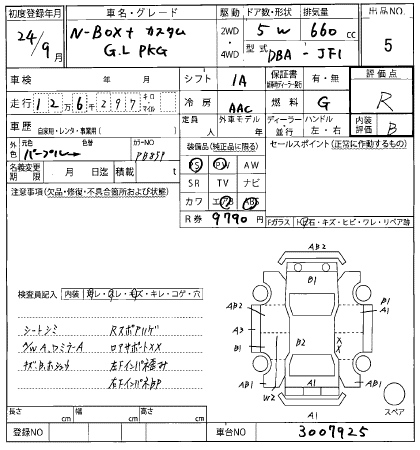 初度登録年月 車名・グレード 駆動 ドア数・形状 排気量 出品NO.
24/9月 N-BOX+ カスタム G.L PKG 2WD 4WD 5W 660cc 5
型式 DBA-JF1
車検 年 月 シフト IA 保証書 有・無 評価点
走行 12万6千297 キロ マイル 冷房 AAC 燃料 G R
車歴 自家用・レンタ・事業用( ) 定員 人 外車モデル 年 ディーラー 並行 ハンドル 左・右 内装評価 B
外色 元色 パープル 色替 カラーNO PB85P 装備品(純正品に限る) セールスポイント(正常に作動するもの)
名義変更期限 月 日迄 積載 t PS PW AW
注意事項(欠品・修復・不具合箇所および状態) SR TV ナビ
カワ エアB ABS
R券 9790円 Fガラス トビ石・キズ・ヒビ・ワレ・リペア跡
AB2
B1
検査員記入 内装 スレ・キレ・コゲ・穴
AB2 AB1
A3 A2
B1 B2 X X B1
シートシミ Rスポアハゲ
ロアサポートXX
AB1 A1 AB1
W2 A1 スペア
長さ cm 幅 cm 高さ cm
登録NO 車台NO 3007925